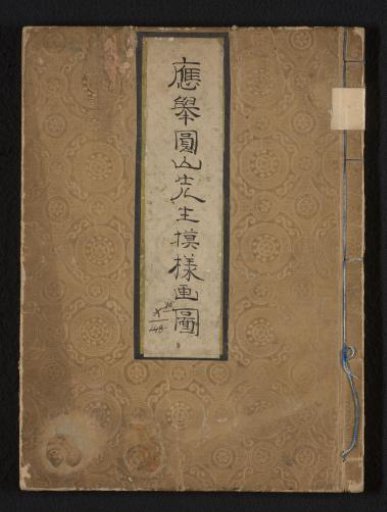 應舉圓山先生摸様画圖
X
148